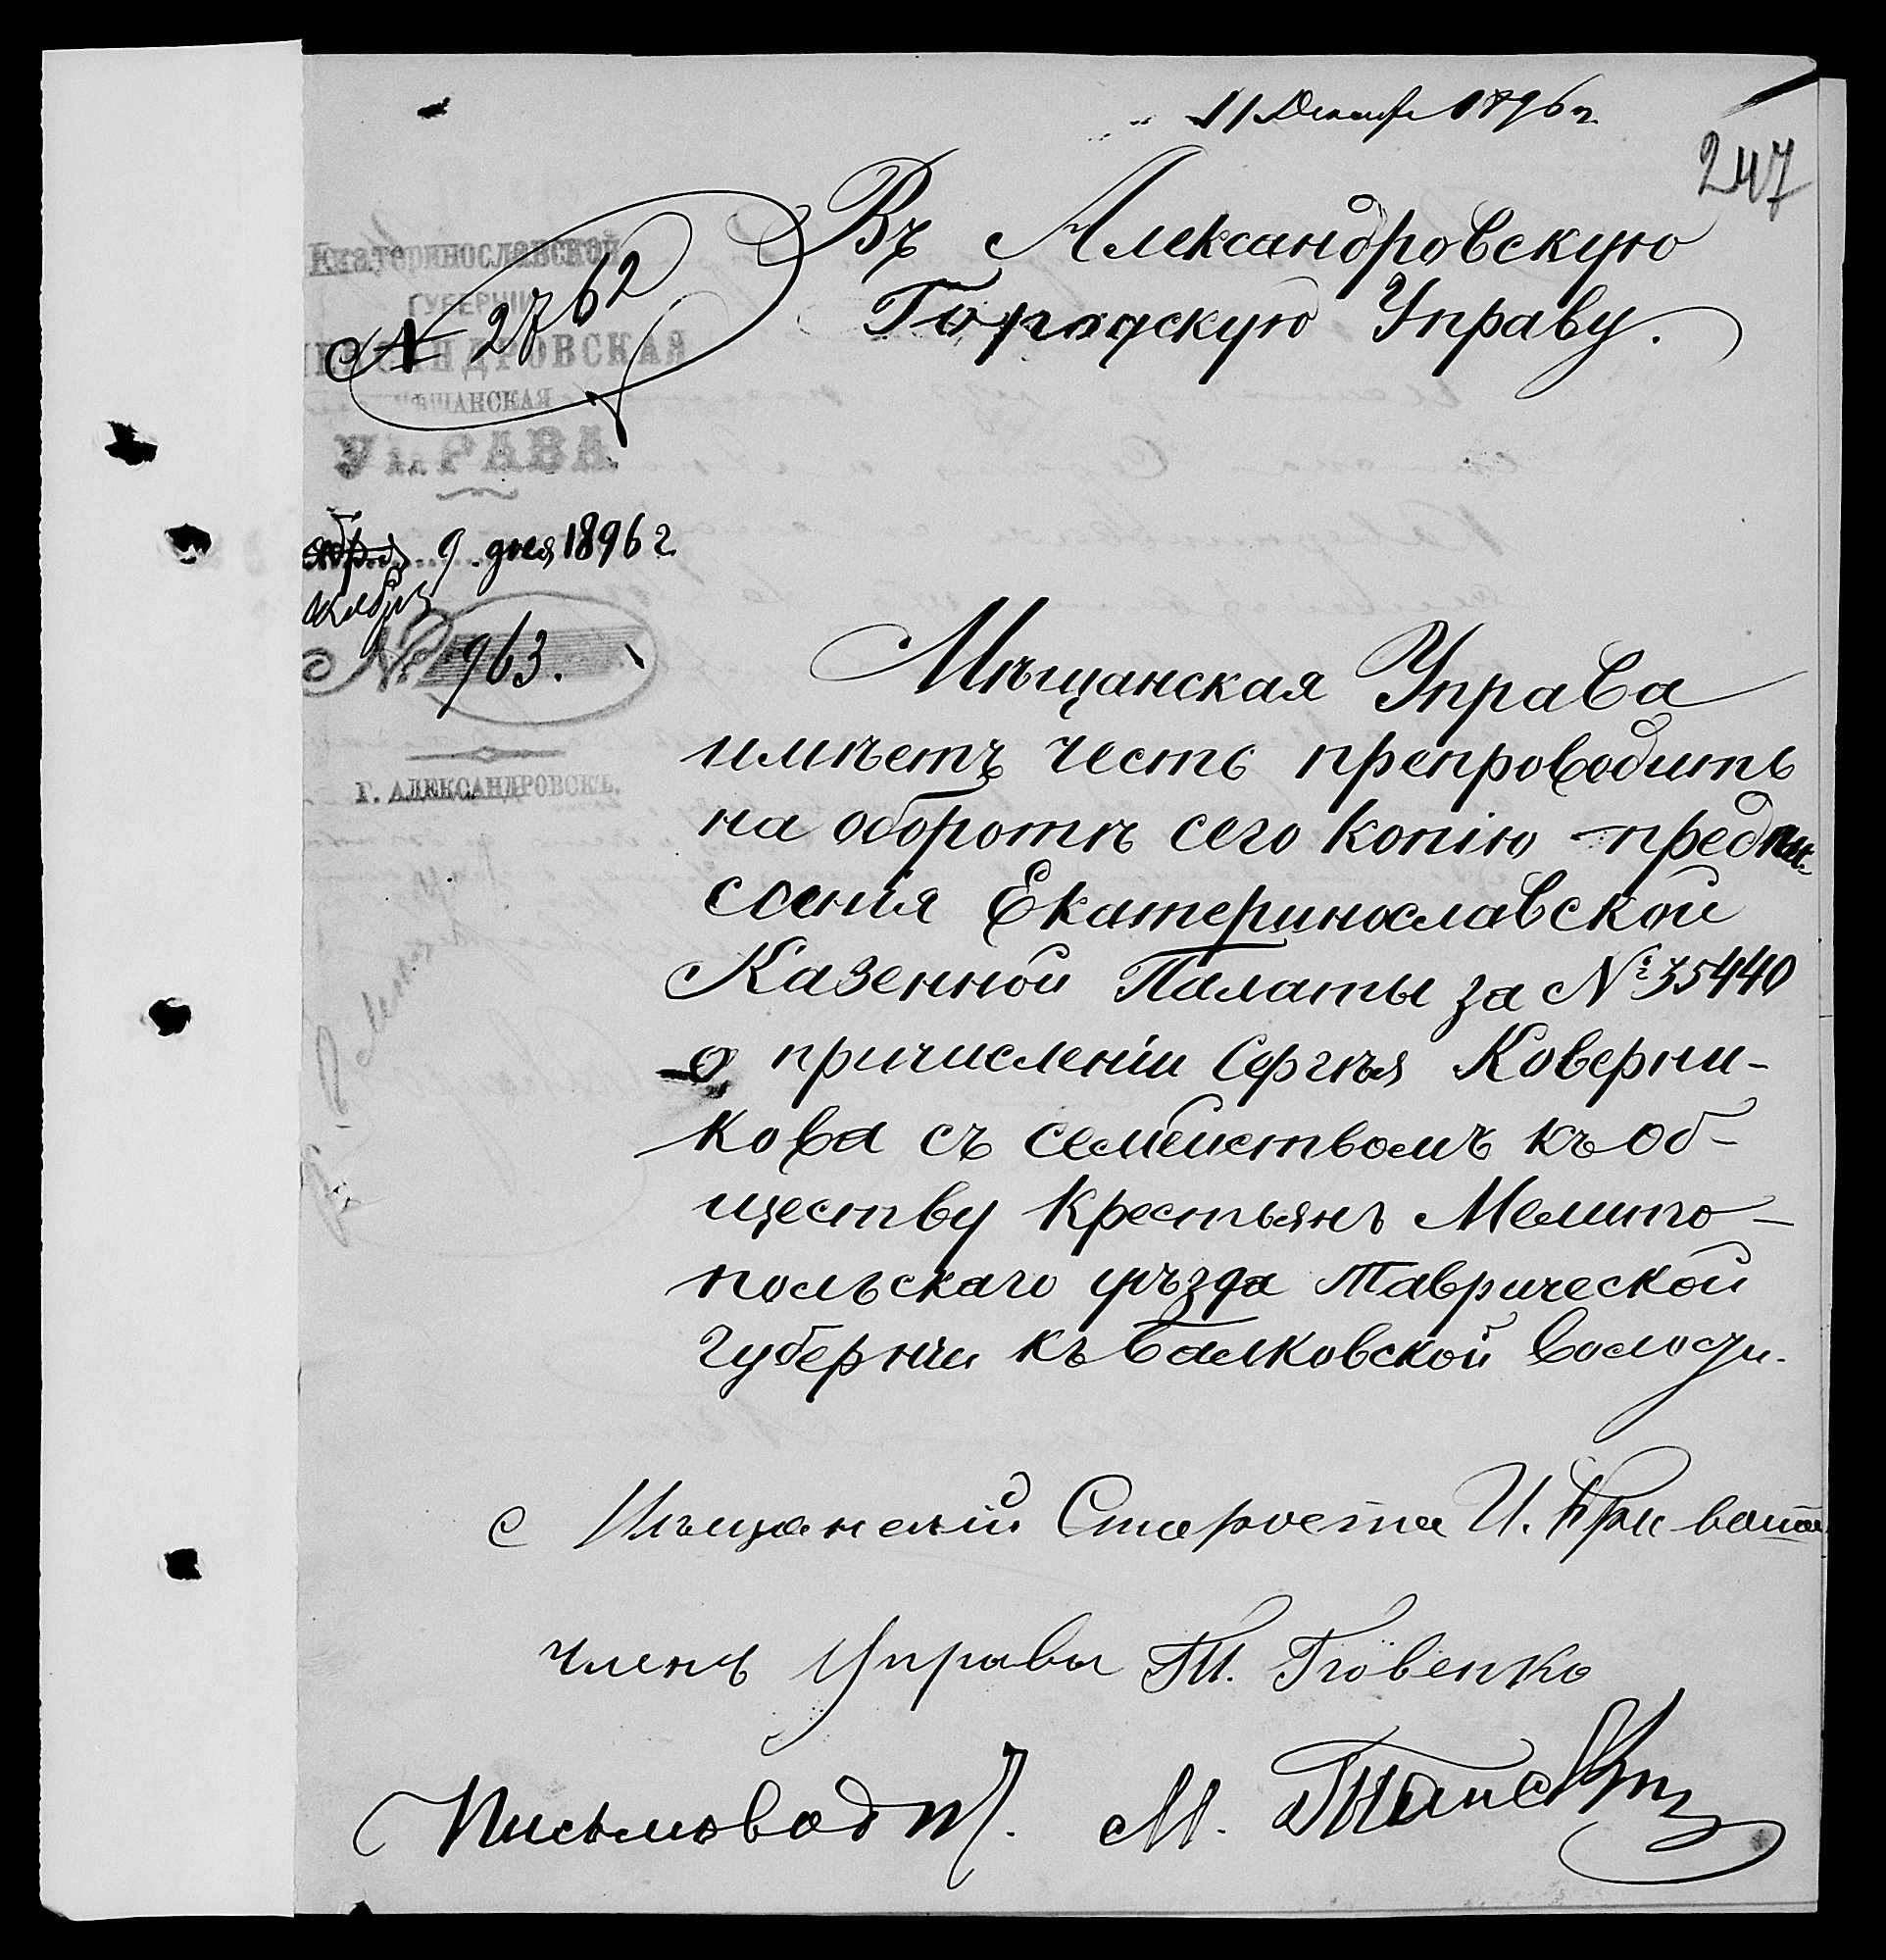 11 Декабр 1896 г.
247
Въ Александровскую
Городскую Управу.
Екатеринославской
ГУБЕРНІИ
№ 2762
АЛЕКСАНДРОВСКАЯ
МѢЩАНСКАЯ
УПРАВА
9 дня 1896 г.
№ 963.
Г. АЛЕКСАНДРОВСКЪ.
Мѣщанская Управа
имѣетъ честь препроводить
на оборотѣ сего копію предпи-
санія Екатеринославской
Казенной Палаты за № 35440
о причисленіи Сергѣя Коверни-
кова съ семействомъ къ об-
ществу крестьянъ Мелито-
польскаго уѣзда Таврической
губерніи къ Балковской волости.
Мѣщанскій Староста И.
членъ Управы
Письмовод М.